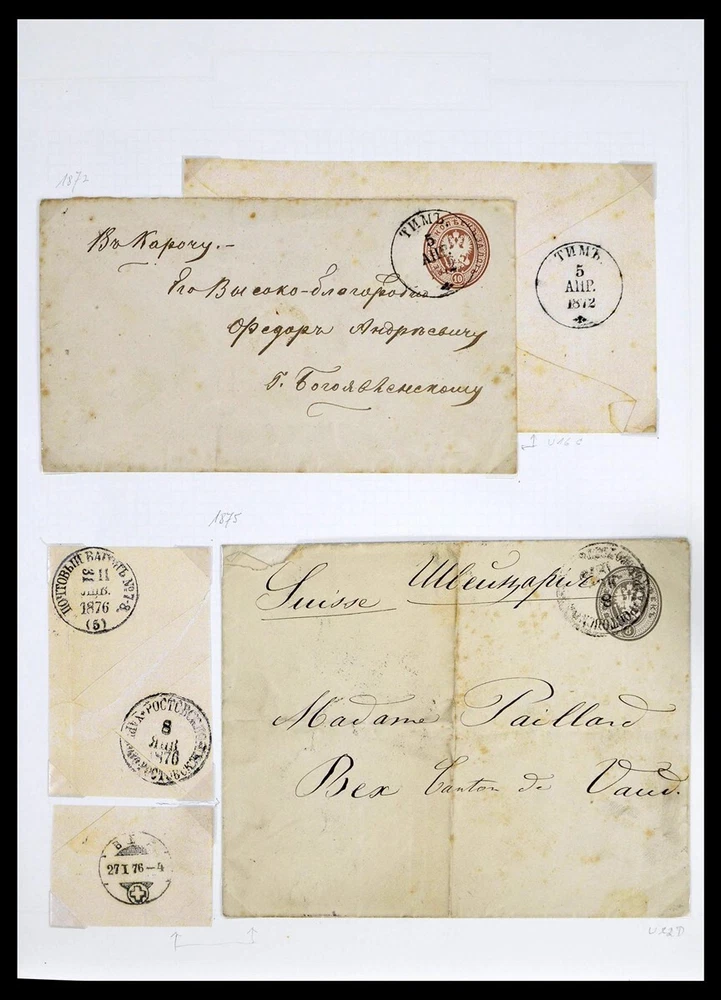 1872
Въ Карочу.-
Его Высоко-благородію
Ѳедоръ Андрѣевичу
Г. Богоявленскому
ТИМЪ
5
АПР.
10
ТИМЪ.
5
АПР.
1872
U16 C
1875
ПОЧТОВЫЙ ВАГОНЪ № 7-8
II
31
ЯНВ.
1876
(5)
РОСТОВСК
8
ЯНВ
1876
РОСТОВСК
27 I 76 – 4
Suisse Швейцарію
Madame Paillard
Bex Canton de Vaud.
U22D